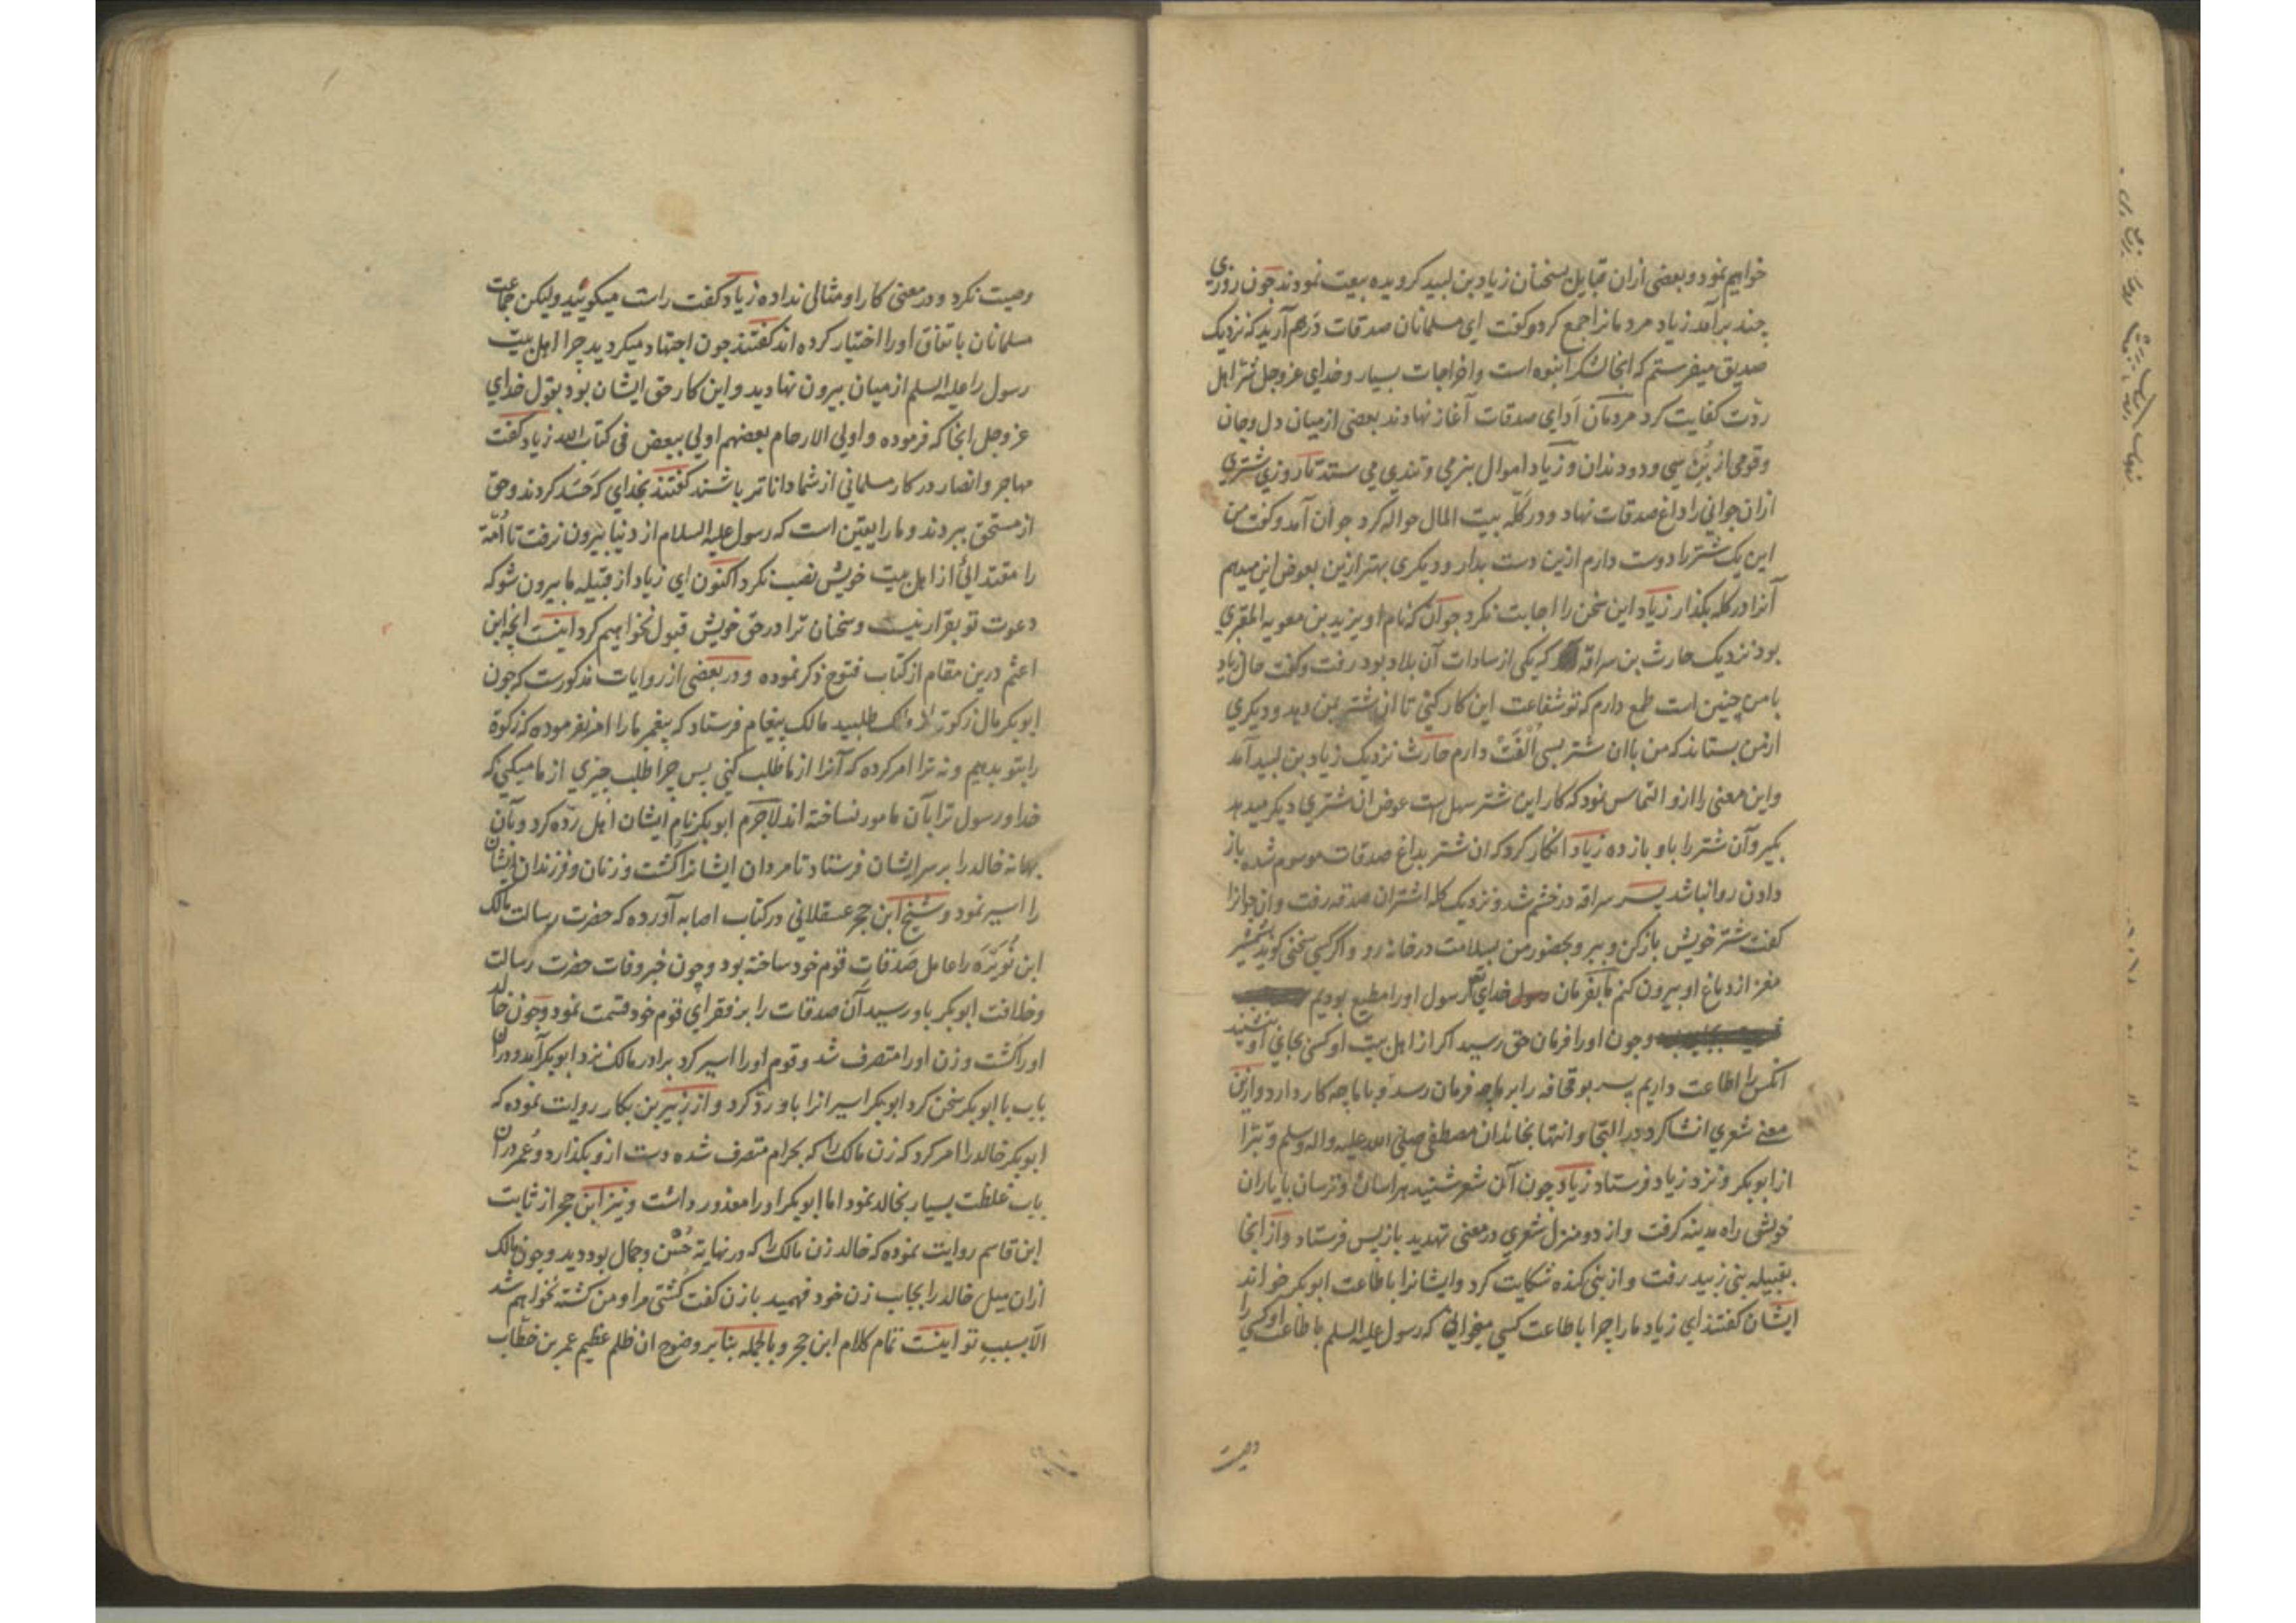 خواهیم نمود و بعضی ازان قبایل بسخنان زیاد بن لبید کرویده بیعت نمودند جون روزی
جند برآمد زیاد مردمانرا جمع کرد و کفت ای مسلمانان صدقات درهم آرید که نزدیک
صدیق میفرستم که انجا لشکر انبوه است و اخراجات بسیار و خدای عز وجل شر اهل
ردّت کفایت کرد مردمان اَدای صدقات آغاز نهادند بعضی از میان دل وجان
و قومی از بُنِ سی و دو دندان و زیاد اموال بنرمی و تندی می ستد تا روزی شتری
ازان جوانی را داغ صدقات نهاد و در کلّه بیت المال حواله کرد جوان آمد و کفت من
این یک شتر را دوست دارم ازین دست بدار و دیکری بهتر ازین بعوض این میدهم
آنرا در کله بکذار زیاد این سخن را اجابت نکرد جوان که نام او یزید بن معویه المقری
بود نزدیک حارث بن سراقه که یکی از سادات آن بلاد بود رفت و کفت حال زیاد
با من جنین است طمع دارم که تو شفاعت این کار کنی تا ان شتر بمن دهد و دیکری
ازمن بستاند که من باان شتر بسی اُلفَتْ دارم حارث نزدیک زیاد بن لبید آمد
واین معنی را ازو التماس نمود که کار این شتر سهل است عوض ان شتری دیکر میدهد
بکیر و آن شتر را باو باز ده زیاد انکار کرد که ان شتر بداغ صدقات موسوم شده باز
دادن روا نباشد پسر سراقه در خشم شد و نزدیک کله اشتران صدقه رفت و ان جوانرا
کفت شتر خویش باز کن و ببر و بحضور من بسلامت در خانه رو و اکر کسی سخنی کوید بشمشیر
مغز از دماغ او بیرون کنم ما بفرمان خدای تع رسول اورا مطیع بودیم
وجون اورا فرمان حق رسید اکر از اهل بیت او کسی بجای او بنشیند
انکس را اطاعت داریم پسر بوقحافه را بر ما جه فرمان رسد و با ما جه کار دارد و ازین
معنے شعری انشا کرد در التجا و انتها بخاندان مصطفی صلی الله علیه واله وسلم و تبّرا
از ابوبکر و نزد زیاد فرستاد زیاد جون آن شعر شنید هراسان و ترسان با یاران
خویش راه مدینه کرفت و از دو منزل شعری در معنی تهدید باز پس فرستاد و از انجا
بقبیله بنی زبید رفت و از بنی کنده شکایت کرد و ایشانرا باطاعت ابوبکر خواند
ایشان کفتند ای زیاد ما را جرا باطاعت کسی میخوانی که رسول علیه السلم باطاعت او کسی را
وصیت
وصیت نکرد و در معنی کار او مثالی نداده زیاد کفت راست میکوئید ولیکن جماعت
مسلمانان باتفاق اورا اختیار کرده اند کفتند جون اجتهاد میکردید جرا اهل بیت
رسول را علیه السلم از میان بیرون نهادید و این کار حق ایشان بود بقول خدای
عز وجل انجا که فرموده و اولی الارحام بعضهم اولی ببعض فی کتاب الله زیاد کفت
مهاجر و انصار در کار مسلمانی از شما داناتر باشند کفتند بخدای که حَسَد کردند و حق
از مستحق ببردند و ما را یقین است که رسول علیه السلام از دنیا بیرون نرفت تا اُمّة
را مقتدائی از اهل بیت خویش نصب نکرد اکنون ای زیاد از قبیله ما بیرون شو که
دعوت تو بقرار نیست و سخنان ترا در حق خویش قبول نخواهیم کرد اینست انجه ابن
اعثم درین مقام از کتاب فتوح ذکر نموده و در بعضی از روایات مذکورست که جون
ابوبکر مال زکوة از مالک طلبید مالک پیغام فرستاد که پیغمبر ما را امر نفرموده که زکوة
را بتو بدهیم و نه ترا امر کرده که آنرا از ما طلب کنی پس جرا طلب جیزی از ما میکنی که
خدا و رسول ترا بآن مامور نساخته اند لاجرم ابوبکر نام ایشان اهل ردّه کرد و بآن
بهانه خالد را بر سر ایشان فرستاد تا مردان ایشانرا کشت و زنان و فرزندان ایشان
را اسیر نمود و شیخ ابن حجر عسقلانی در کتاب اصابه آورده که حضرت رسالت مالک
ابن نُوَیرَه را عامل صَدَقاتِ قوم خود ساخته بود و جون خبر وفات حضرت رسالت
و خلافت ابوبکر باو رسید آن صدقات را بر فقرای قوم خود قسمت نمود و جون خالد
اورا کشت و زن اورا متصرف شد و قوم اورا اسیر کرد برادر مالک نزد ابوبکر آمد و دران
باب با ابوبکر سخن کرد ابوبکر اسیرانرا باو ردّ کرد و از زبیر بن بکار روایت نموده که
ابوبکر خالد را امر کرد که زن مالک را که بحرام متصرف شده دست ازو بکذارد و عُمر دران
باب غلظت بسیار بخالد نمود اما ابوبکر اورا معذور داشت و نیز ابن حجر از ثابت
ابن قاسم روایت نموده که خالد زن مالک را که در نهایة حُسن و جمال بود دید و جون مالک
ازان میل خالد را بجانب زن خود فهمید با زن کفت کشتی مرا و من کشته نخواهم شد
الّا بسببِ تو اینست تمام کلام ابن حجر و بالجمله بنابر وضوح ان ظلم عظیم عمر بن خطّاب